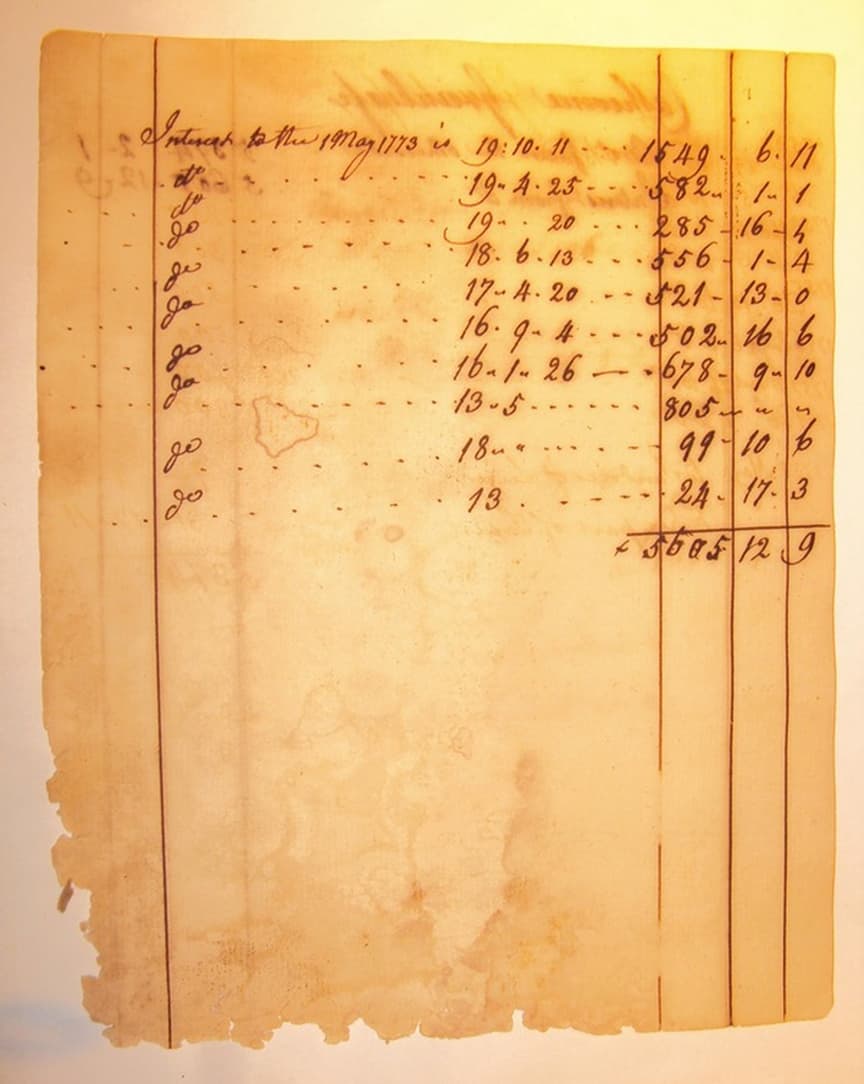 Interest to the 1 May 1773 is 19:10.11 - - 1549 - 6. 11
do - - - - 19-4.25 - - - - 582 - 1 - 1
do - - - - 19 - . 20 - - - 285 - 16 - 4
do - - - - 18.6.13 - - - - 556 - 1 - 4
do - - - - 17-4.20 - - - 521 - 13 - 0
do - - - - 16.9-4 - - - - 502 - 16 6
do - - - - 16-1-26 — - - 678 - 9 - 10
do - - - - 13-5 - - - - - - 805 - " "
do - - - - 18 - " - - - - - 99 - 10 6
do - - - - 13 . - - - - - 24 - 17 - 3
£ 5605 12 9